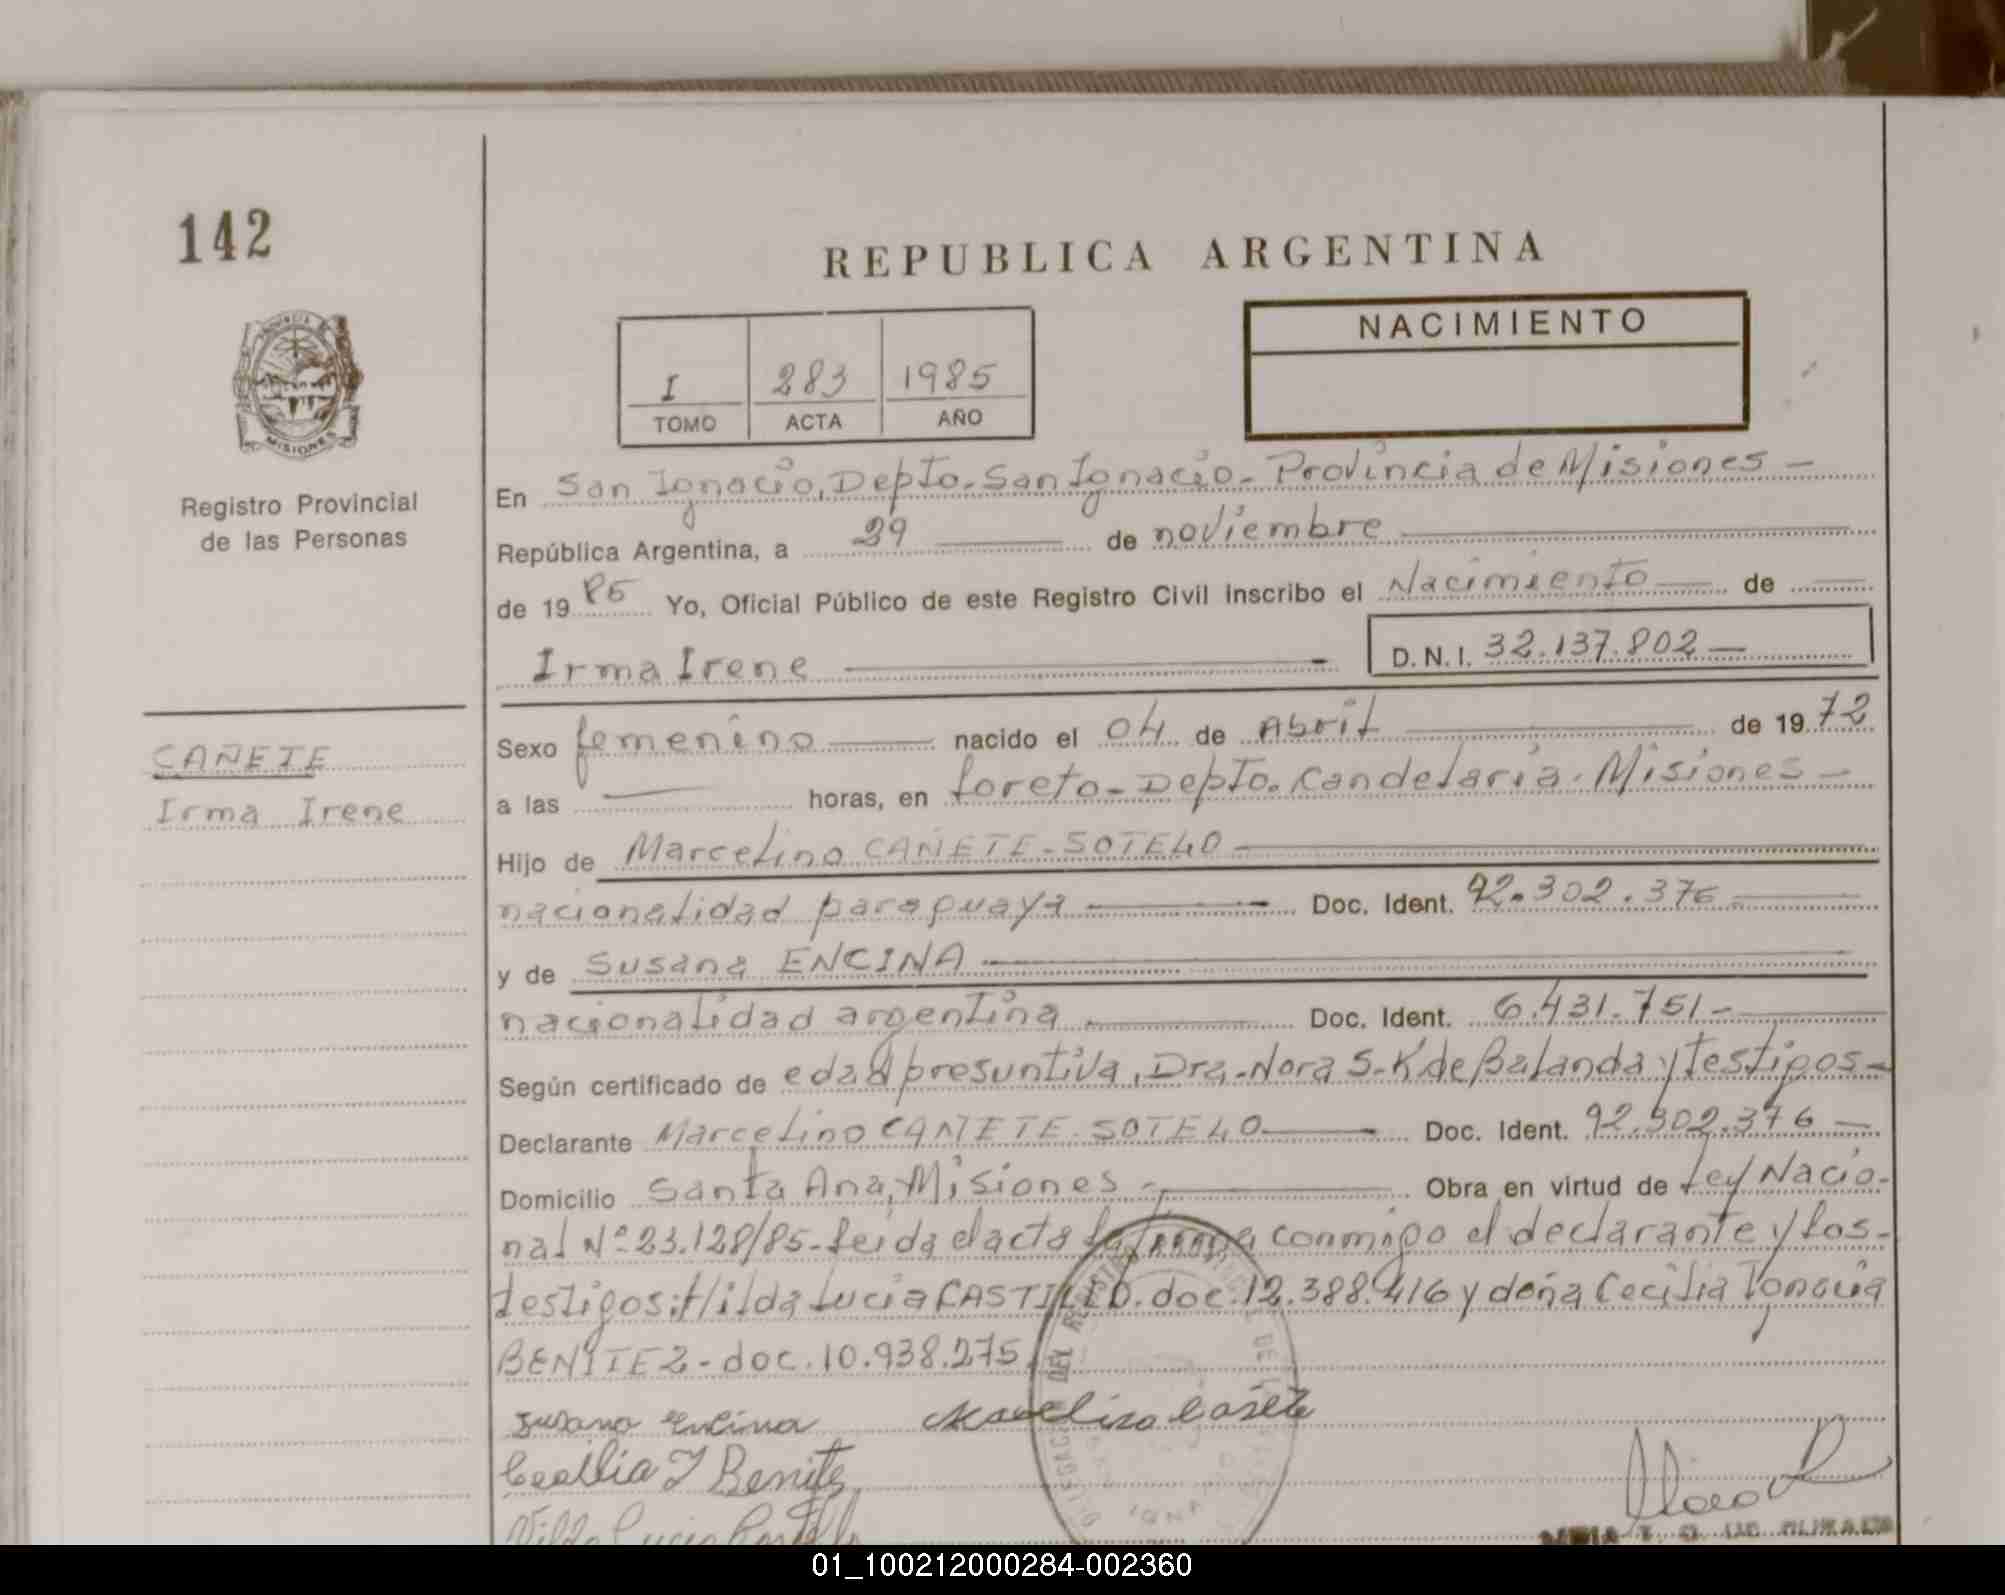 142
REPUBLICA ARGENTINA
PROVINCIA DE
MISIONES
Registro Provincial
de las Personas
I 283 1985
TOMO ACTA AÑO
NACIMIENTO
En San Ignacio, Depto. San Ignacio - Provincia de Misiones -
República Argentina, a 29 de noviembre
de 1985 Yo, Oficial Público de este Registro Civil inscribo el Nacimiento de
Irma Irene D.N.I. 32.137.802
CAÑETE
Irma Irene
Sexo femenino nacido el 04 de Abril de 1972
a las horas, en Loreto - Depto. Candelaria. Misiones -
Hijo de Marcelino CAÑETE-SOTELO
nacionalidad paraguaya Doc. Ident. 92.302.376
y de Susana ENCINA
nacionalidad argentina Doc. Ident. 6.431.751-
Según certificado de edad presuntiva, Dra. Nora S. K de Balanda y testigos-
Declarante Marcelino CAÑETE-SOTELO Doc. Ident. 92.302.376
Domicilio Santa Ana, Misiones - Obra en virtud de Ley Nacio-
nal Nº 23.128/85 - Leída el acta la firma conmigo el declarante y los-
testigos: Hilda Lucia CASTILLO. doc. 12.388.416 y doña Cecilia Ignacia
BENITEZ - doc. 10.938.275
Susana Encina Marcelino Cañete
Cecilia I Benitez
Hilda Lucia Castillo
01_100212000284-002360